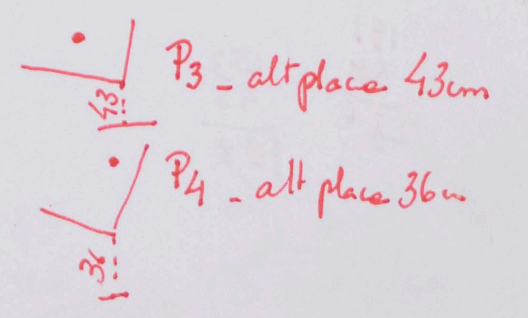 P3 - alt place 43cm
43
P4 - alt place 36c
36